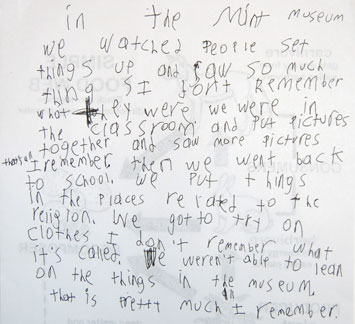 in the Mint museum
we watched people set
things up and saw so much
thing s I dont remember
what they were we were in
the classroom and put pictures
together and saw more pictures
that's all I remember. then we went back
to school. we put things
in the places related to the
rejigion. We got to try on
clothes I don't remember what
it's called. We weren't able to lean
on the things in the museum.
that is prett much I remember.